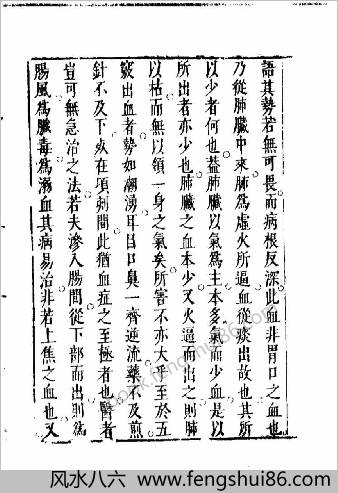 語其勢若無可畏而病根反深此血非胃口之血也
乃從肺臟中來肺為虛火所逼血從痰出故也其所
以少者何也蓋肺臟以氣為主本多氣而少血是以
所出者亦少也肺臟之血本少又火逼而出之則肺
以枯而無以領一身之氣矣所害不亦大乎至於五
竅出血者勢如潮湧耳目口鼻一齊逆流藥不及煎
針不及下死在項刻間此猶血症之至極者也醫者
豈可無急治之法若夫滲入腸間從下部而出則為
腸風為臟毒為溺血其病易治非若上焦之血也又
风水八六-www.fengshui86.com